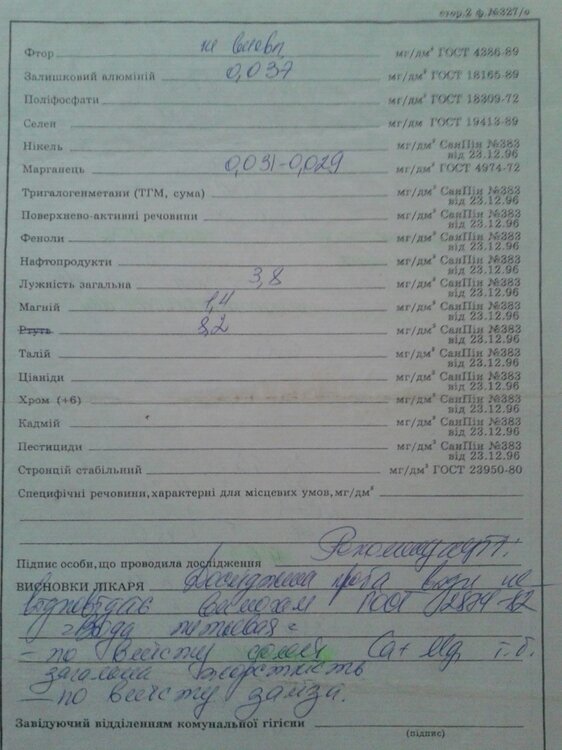 стор.2 ф.№327/о
Фтор не виявл мг/дм³ ГОСТ 4386-89
Залишковий алюміній 0,037 мг/дм³ ГОСТ 18165-89
Поліфосфати мг/дм³ ГОСТ 18309-72
Селен мг/дм ГОСТ 19413-89
Нікель мг/дм³ СанПін №383
від 23.12.96
Марганець 0,031-0,029 мг/дм³ ГОСТ 4974-72
Тригалогенметани (ТГМ, сума) мг/дм³ СанПін №383
від 23.12.96
Поверхнево-активні речовини мг/дм³ СанПін №383
від 23.12.96
Феноли мг/дм³ СанПін №383
від 23.12.96
Нафтопродукти мг/дм³ СанПін №383
від 23.12.96
Лужність загальна 3,8 мг/дм³ СанПін №383
від 23.12.96
Магній 1,4 мг/дм³ СанПін №383
від 23.12.96
Ртуть 8,2 мг/дм³ СанПін №383
від 23.12.96
Талій мг/дм³ СанПін №383
від 23.12.96
Ціаніди мг/дм³ СанПін №383
від 23.12.96
Хром (+6) мг/дм³ СанПін №383
від 23.12.96
Кадмій мг/дм³ СанПін №383
від 23.12.96
Пестициди мг/дм³ СанПін №383
від 23.12.96
Стронцій стабільний мг/дм³ ГОСТ 23950-80
Специфічні речовини, характерні для місцевих умов, мг/дм³
Підпис особи, що проводила дослідження
ВИСНОВКИ ЛІКАРЯ Досліджена проба води не
відповідає вимогам ГОСТ 2874-82
"Вода питьевая"
- по вмісту солей Ca + Mg, т.б.
загальна жорсткість
- по вмісту заліза.
Завідуючий відділенням комунальної гігієни
(підпис)